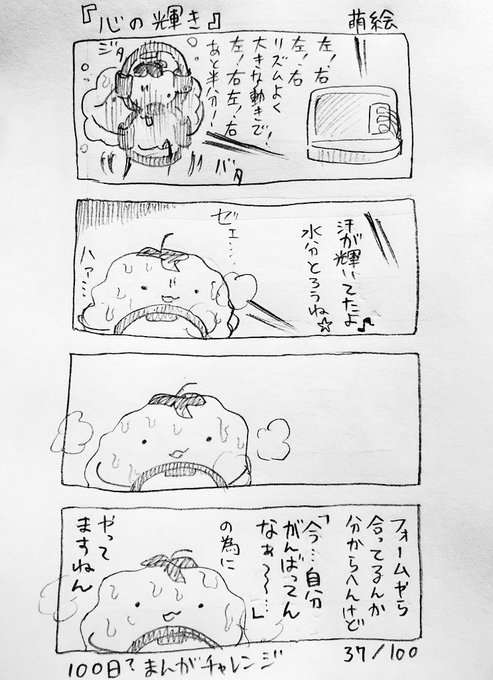 『心の輝き』
萌絵
左！右
左！右
リズムよく
大きな動きで！
左！右左！右
あと半分！
ジタ
バタ
汗が輝いてたよ♪
水分とろうね☆
ゼェ…
ハァ…
フォームやら
合ってるんか
分からへんけど
「今…自分
がんばってん
なぁ〜…」
の為に
やって
ますねん
100日?まんがチャレンジ
37/100